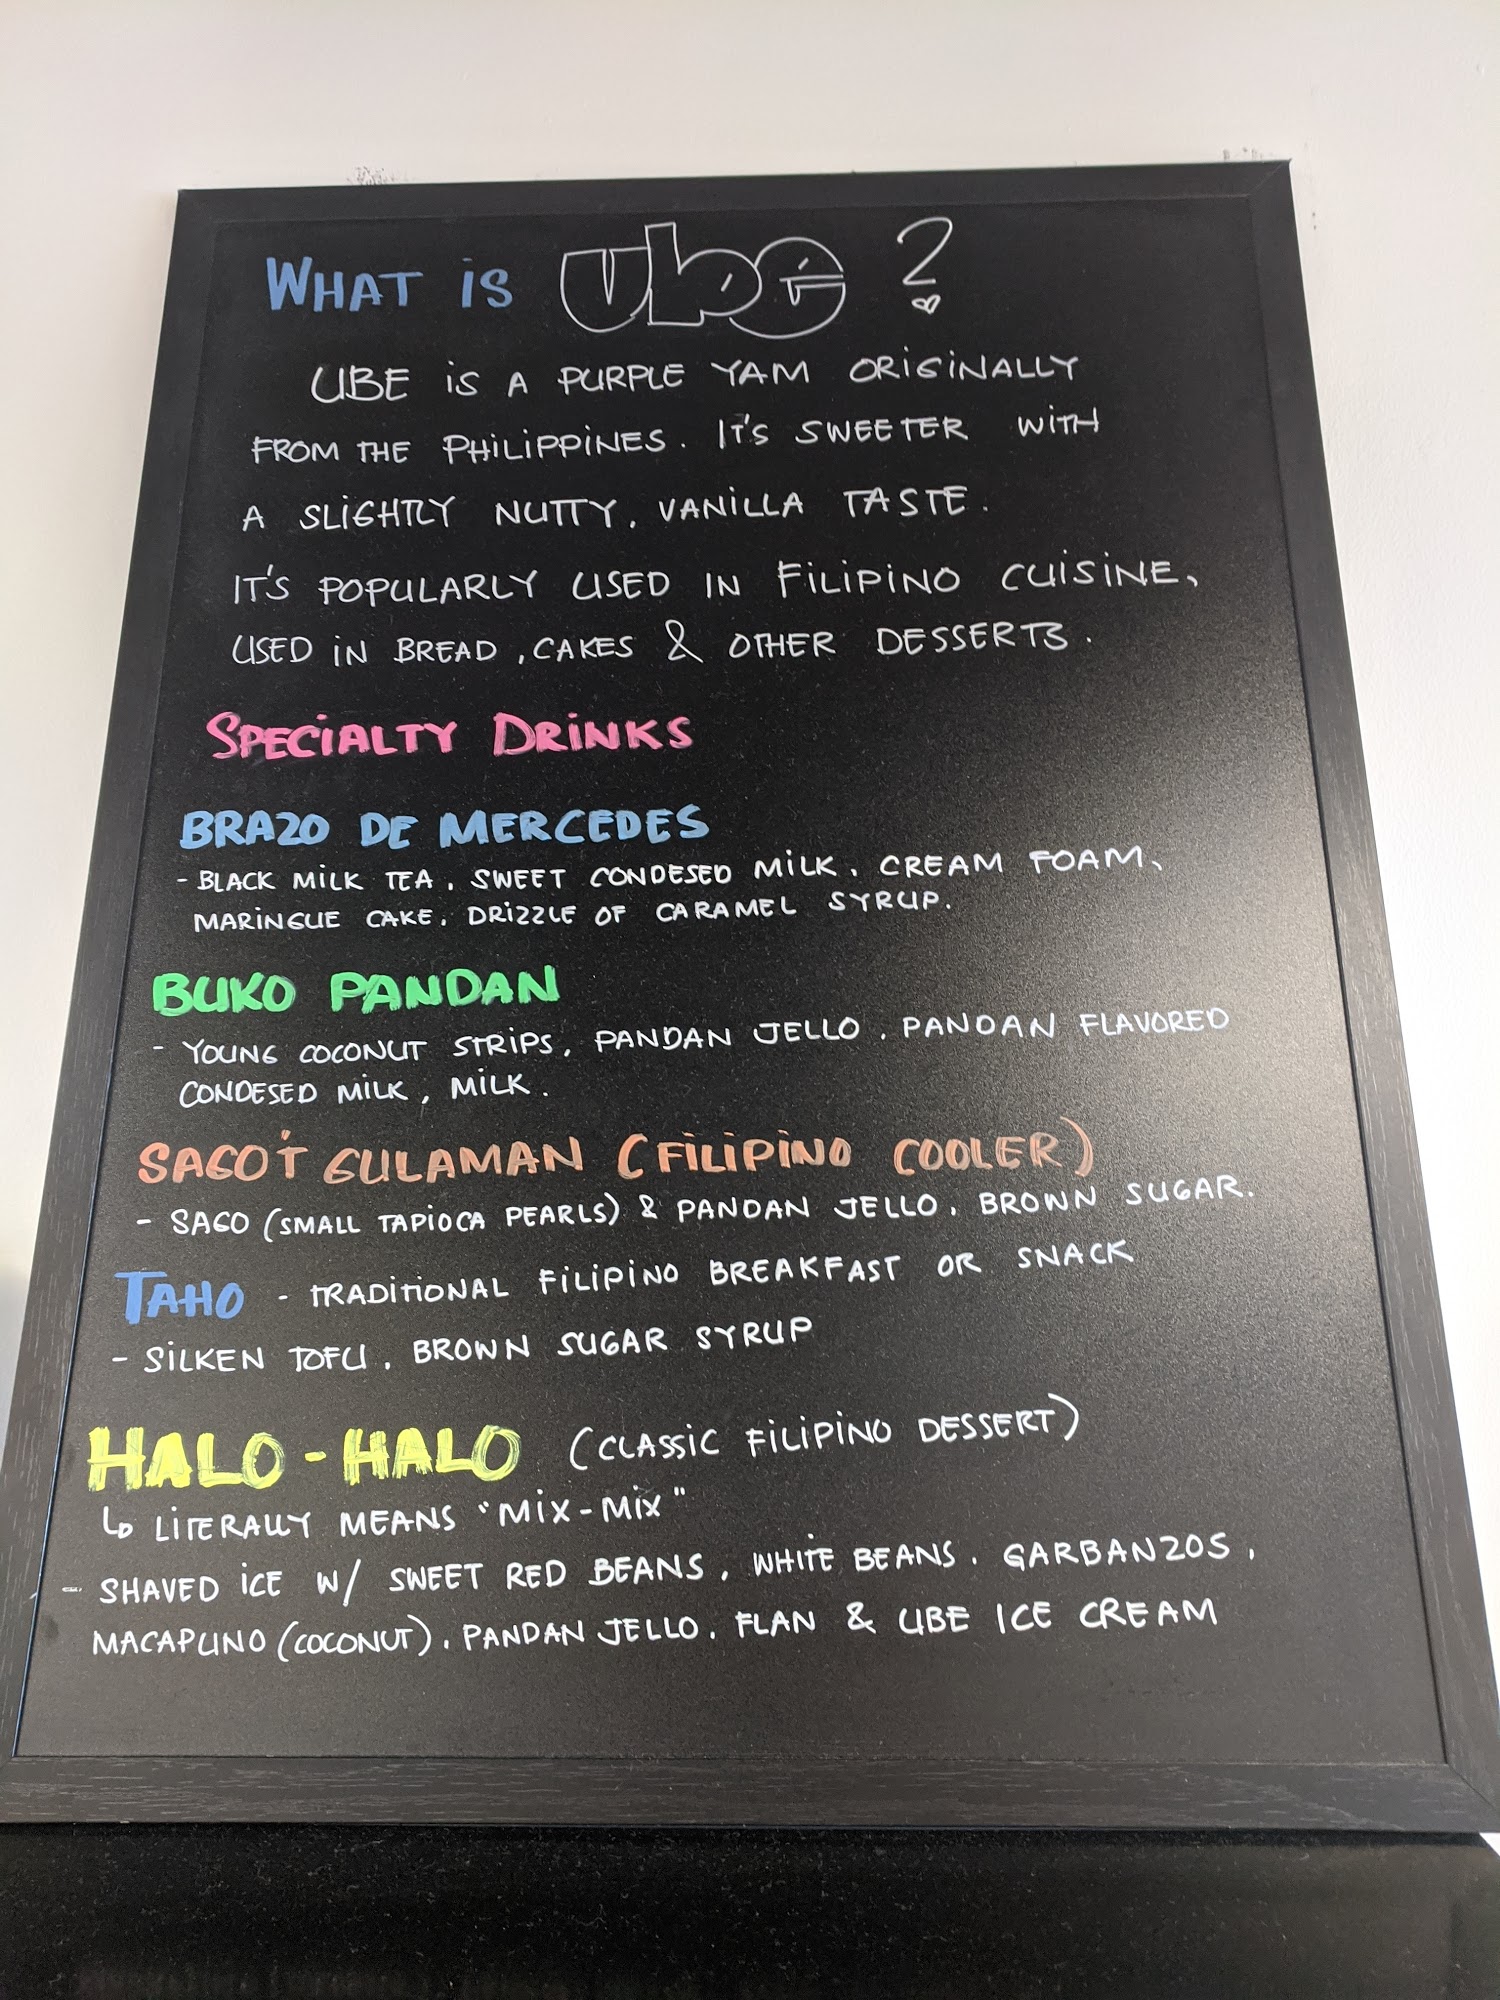 WHAT iS ube ?
UBE iS A PURPLE YAM ORiGiNALLY
FROM THE PHiLiPPiNES. IT'S SWEETER WiTH
A SLiGHTLY NUTTY, VANiLLA TASTE.
IT'S POPULARLY USED IN FiLiPiNO CUiSiNE,
USED iN BREAD, CAKES & OTHER DESSERTS.
SPECiALTY DRiNKS
BRAZO DE MERCEDES
- BLACK MiLK TEA, SWEET CONDESED MiLK, CREAM FOAM,
MARiNGUE CAKE, DRiZZLE OF CARAMEL SYRUP.
BUKO PANDAN
- YOUNG COCONUT STRiPS, PANDAN JELLO, PANDAN FLAVORED
CONDESED MiLK, MiLK.
SAGO'T GULAMAN (FiLiPiNO COOLER)
- SAGO (SMALL TAPiOCA PEARLS) & PANDAN JELLO, BROWN SUGAR.
TAHO - TRADiTiONAL FiLiPiNO BREAKFAST OR SNACK
- SiLKEN TOFU, BROWN SUGAR SYRUP
HALO-HALO (CLASSiC FiLiPiNO DESSERT)
↳ LiTERALLY MEANS "MiX-MiX"
- SHAVED iCE W/ SWEET RED BEANS, WHiTE BEANS, GARBANZOS,
MACAPUNO (COCONUT), PANDAN JELLO, FLAN & UBE ICE CREAM